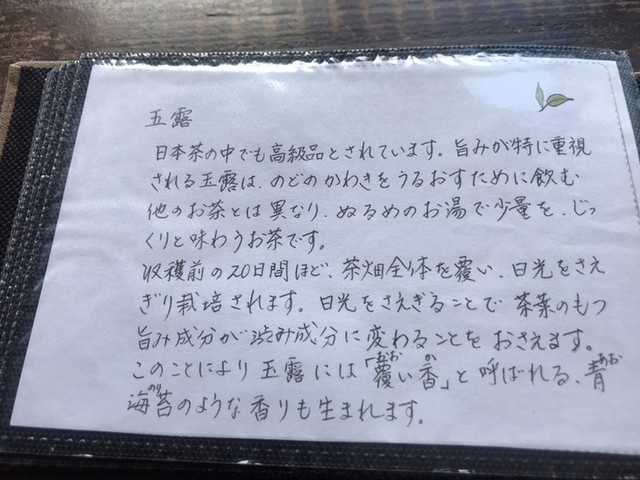 玉露
日本茶の中でも高級品とされています。旨みが特に重視
される玉露は、のどのかわきをうるおすために飲む
他のお茶とは異なり、ぬるめのお湯で少量を、じっ
くりと味わうお茶です。
収穫前の20日間ほど、茶畑全体を覆い、日光をさえ
ぎり栽培されます。日光をさえぎることで茶葉のもつ
旨み成分が渋み成分に変わることをおさえます。
このことにより玉露には「覆い香」と呼ばれる、青
海苔のような香りも生まれます。